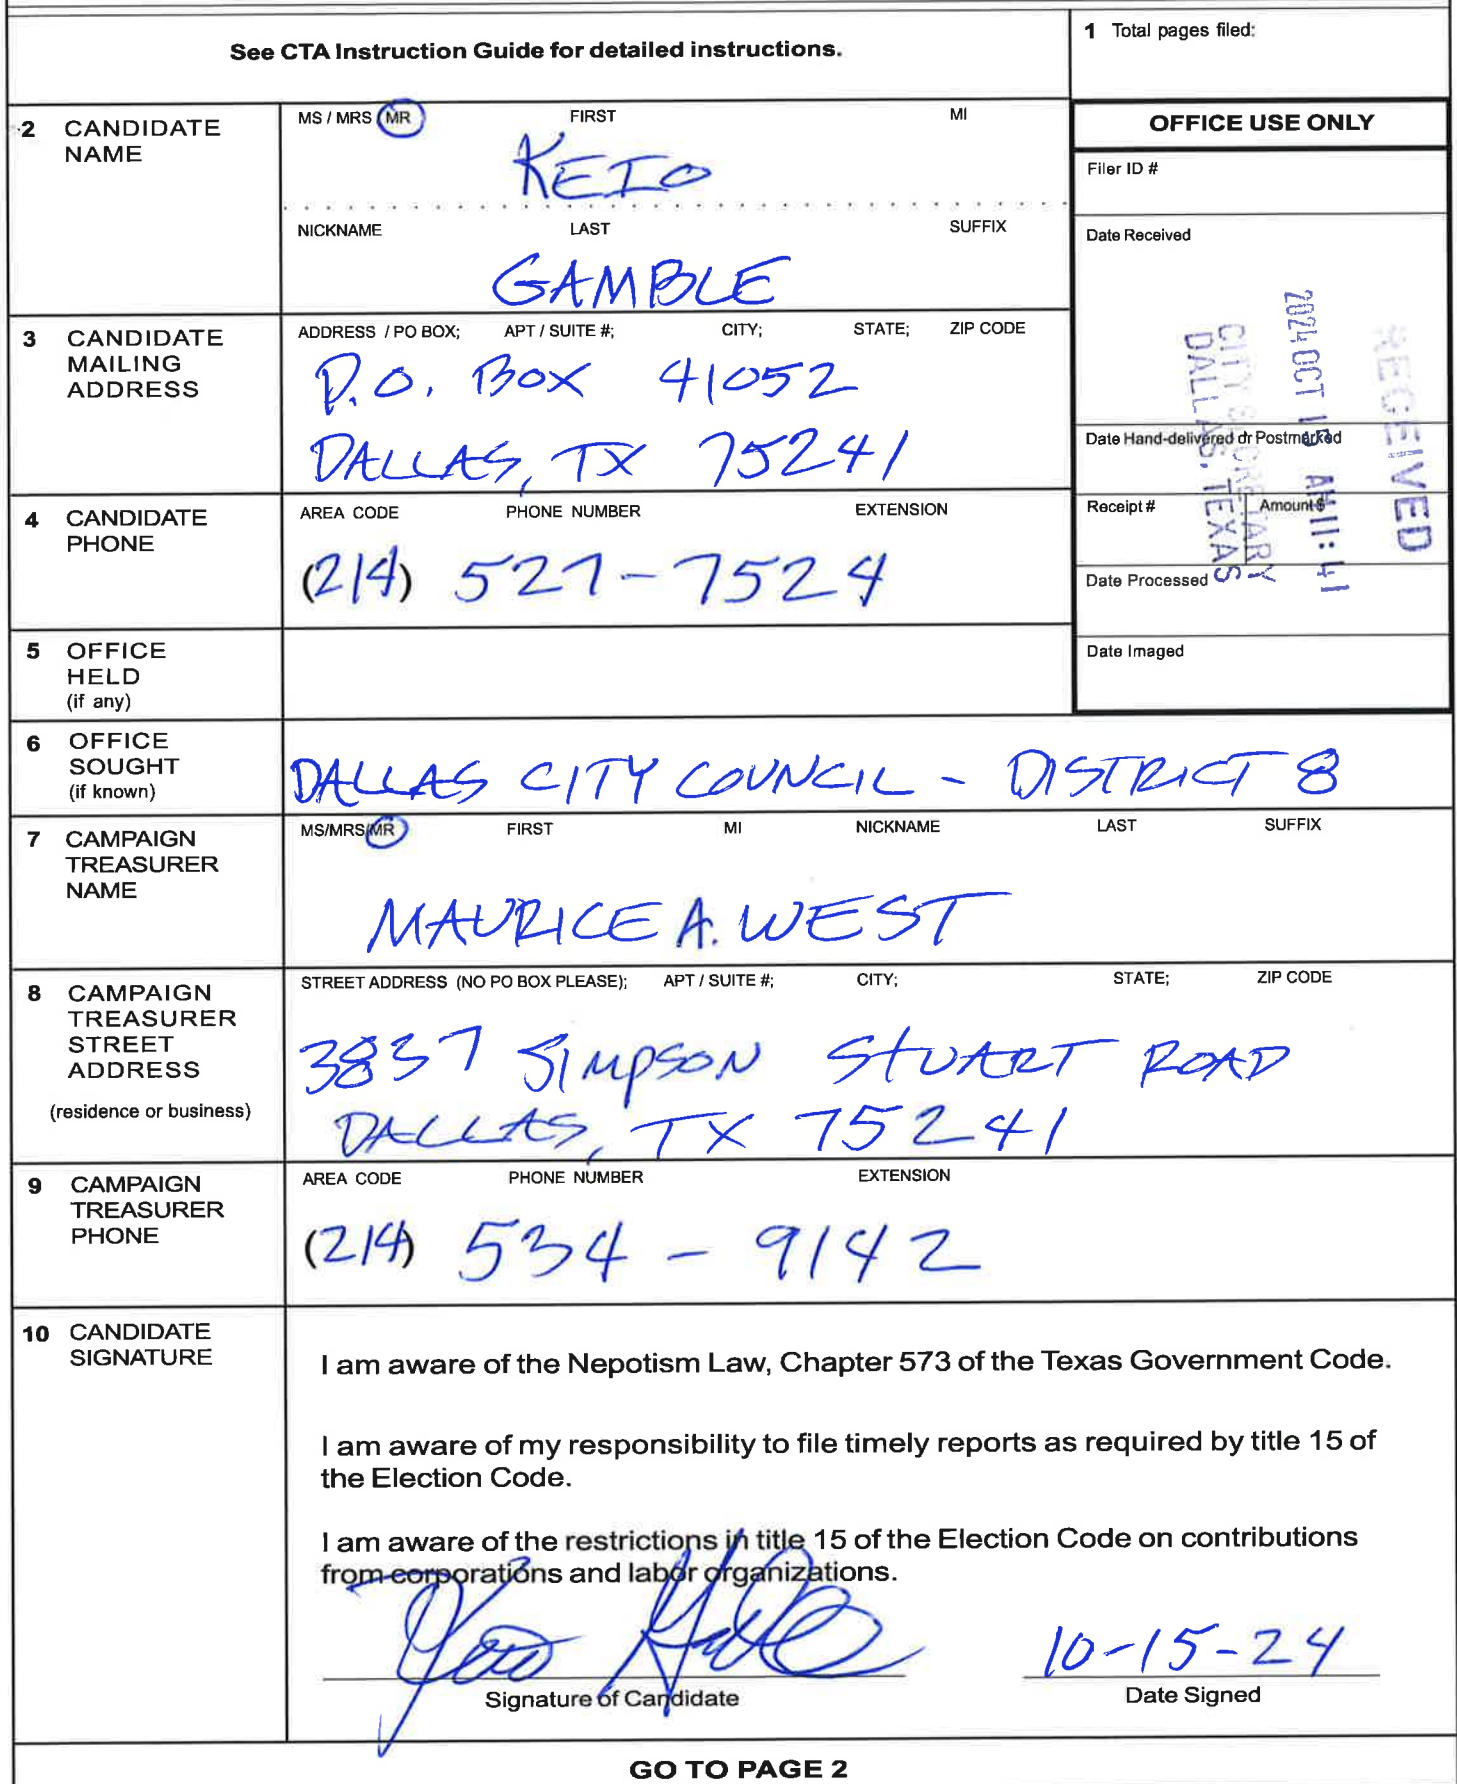 See CTA Instruction Guide for detailed instructions.
1 Total pages filed:
2 CANDIDATE NAME
MS / MRS / MR FIRST MI
KEIO
NICKNAME LAST SUFFIX
GAMBLE
OFFICE USE ONLY
Filer ID #
Date Received
RECEIVED
2024 OCT 15 AM 11:41
CITY SECRETARY
DALLAS, TEXAS
Date Hand-delivered or Postmarked
Receipt # Amount $
Date Processed
Date Imaged
3 CANDIDATE MAILING ADDRESS
ADDRESS / PO BOX; APT / SUITE #; CITY; STATE; ZIP CODE
P.O. BOX 41052
DALLAS, TX 75241
4 CANDIDATE PHONE
AREA CODE PHONE NUMBER EXTENSION
(214) 527-7524
5 OFFICE HELD (if any)
6 OFFICE SOUGHT (if known)
DALLAS CITY COUNCIL - DISTRICT 8
7 CAMPAIGN TREASURER NAME
MS/MRS/MR FIRST MI NICKNAME LAST SUFFIX
MAURICE A. WEST
8 CAMPAIGN TREASURER STREET ADDRESS (residence or business)
STREET ADDRESS (NO PO BOX PLEASE); APT / SUITE #; CITY; STATE; ZIP CODE
3837 SIMPSON STUART ROAD
DALLAS, TX 75241
9 CAMPAIGN TREASURER PHONE
AREA CODE PHONE NUMBER EXTENSION
(214) 534-9142
10 CANDIDATE SIGNATURE
I am aware of the Nepotism Law, Chapter 573 of the Texas Government Code.
I am aware of my responsibility to file timely reports as required by title 15 of
the Election Code.
I am aware of the restrictions in title 15 of the Election Code on contributions
from corporations and labor organizations.
10-15-24
Signature of Candidate Date Signed
GO TO PAGE 2